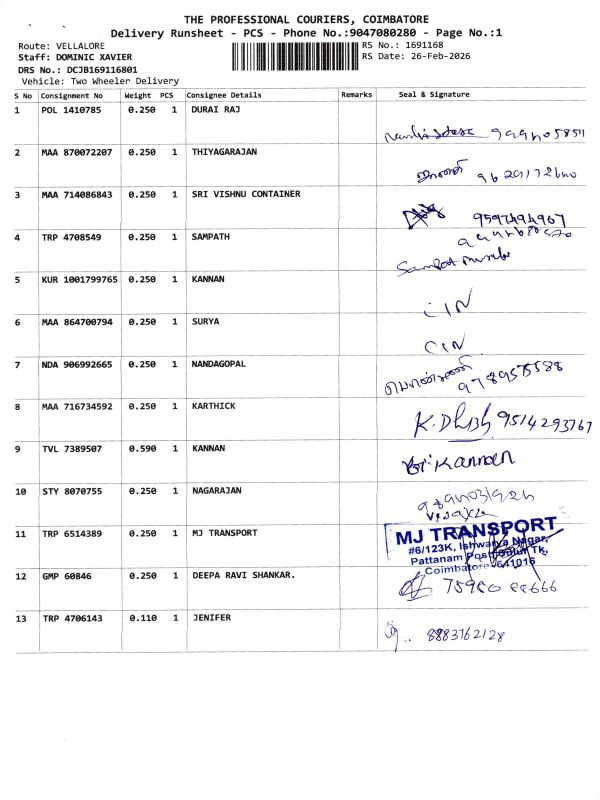 THE PROFESSIONAL COURIERS, COIMBATORE
Delivery Runsheet - PCS - Phone No.:9047080280 - Page No.:1
Route: VELLALORE
RS No.: 1691168
Staff: DOMINIC XAVIER
RS Date: 26-Feb-2026
DRS No.: DCJB169116801
Vehicle: Two Wheeler Delivery
S No Consignment No Weight PCS Consignee Details Remarks Seal & Signature
1 POL 1410785 0.250 1 DURAI RAJ
2 MAA 870072207 0.250 1 THIYAGARAJAN
3 MAA 714086843 0.250 1 SRI VISHNU CONTAINER
9597494967
4 TRP 4708549 0.250 1 SAMPATH
5 KUR 1001799765 0.250 1 KANNAN
CIN
6 MAA 864700794 0.250 1 SURYA
CIN
7 NDA 906992665 0.250 1 NANDAGOPAL
9789575588
8 MAA 716734592 0.250 1 KARTHICK
9514293767
9 TVL 7389507 0.590 1 KANNAN
Kannan
10 STY 8070755 0.250 1 NAGARAJAN
11 TRP 6514389 0.250 1 MJ TRANSPORT
MJ TRANSPORT
#6/123K, Ishwarya Nagar,
Pattanam Tk,
Coimbatore - 641016
12 GMP 60846 0.250 1 DEEPA RAVI SHANKAR.
13 TRP 4706143 0.110 1 JENIFER
8883162128